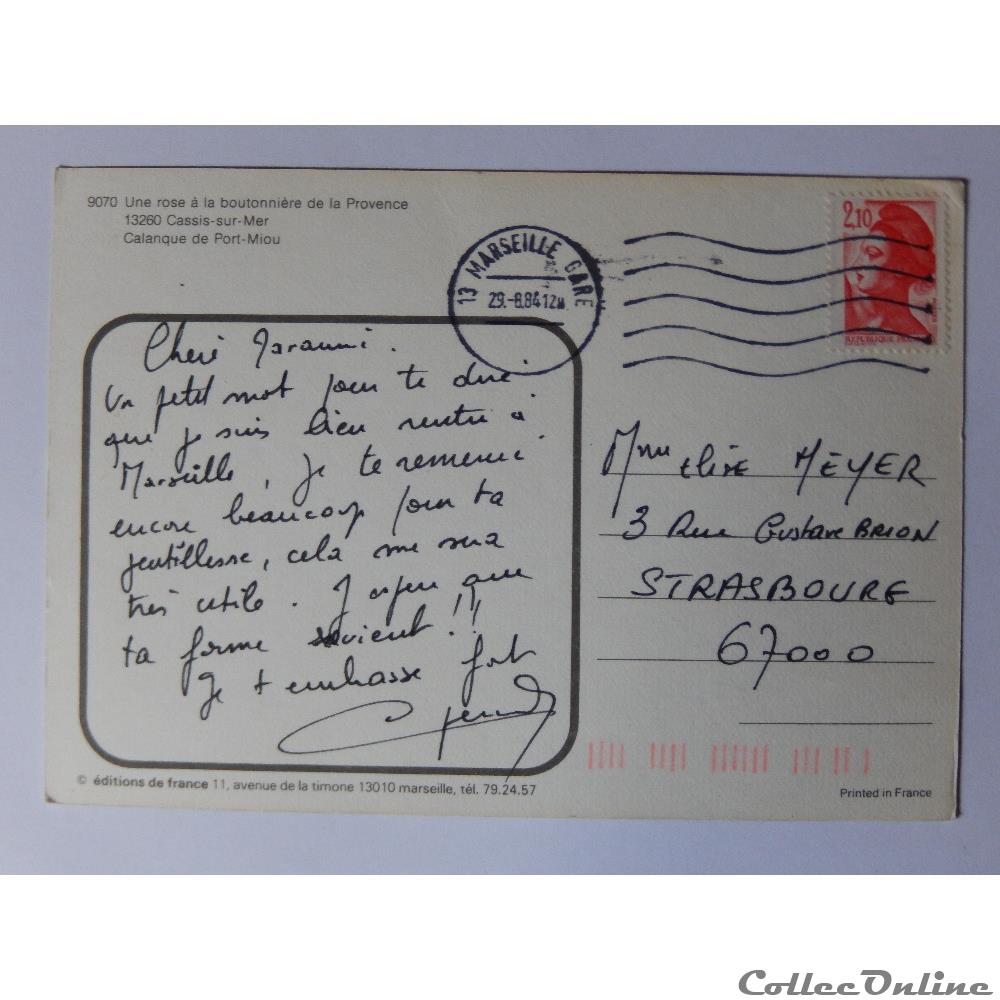 9070 Une rose à la boutonnière de la Provence
13260 Cassis-sur-Mer
Calanque de Port-Miou
13 MARSEILLE GARE
29.-8.84 12H
2,10
REPUBLIQUE
Un petit mot pour te dire
que je suis bien rentré à
Marseille, je te remercie
encore beaucoup pour ta
gentillesse, cela me sera
très utile. J'espère que
ta forme revient !!
Je t'embrasse fort
Mme Elise MEYER
3 Rue Gustave BRION
STRASBOURG
67000
© éditions de france 11, avenue de la timone 13010 marseille, tél. 79.24.57
Printed in France
CollecOnline